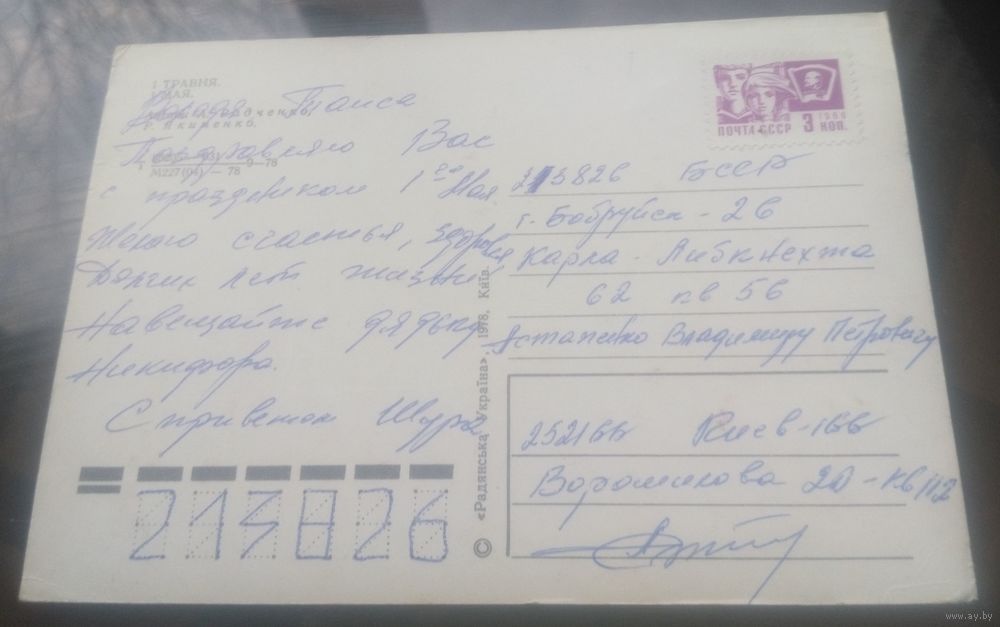 1 ТРАВНЯ.
1 МАЯ.
Г. Якименко.
М227(04) — 78 9—78
Таиса
Поздравляю Вас
с праздником 1го Мая.
Желаю счастья, здоровья
Долгих лет жизни
Навещайте дядьку
Никифора.
С приветом Шура
213826
«Радянська Україна», 1978, Київ.
©
ПОЧТА СССР 3 КОП.
1966
213826 БССР
г. Бобруйск - 26
Карла - Либкнехта
62 кв 56
Остапенко Владимиру Петровичу
252166 Киев-166
20-кв 112
www.ay.by